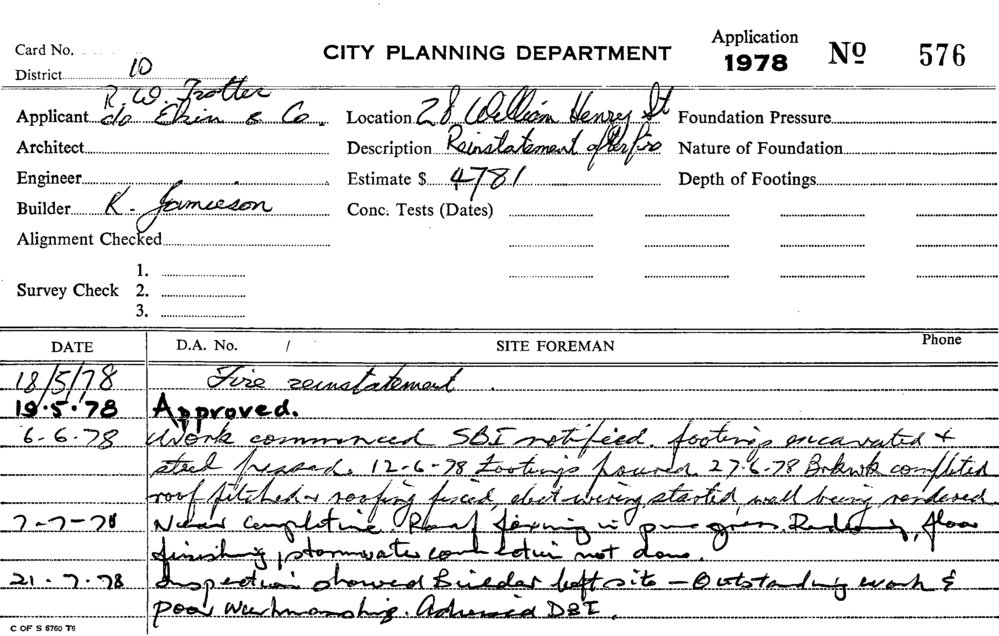 Card No.
CITY PLANNING DEPARTMENT
Application 1978 Nº 576
District 10
R. W. Trotter
Applicant c/o Ekin & Co. Location 28 William Henry St Foundation Pressure
Architect Description Reinstatement after fire Nature of Foundation
Engineer Estimate $ 4781 Depth of Footings
Builder K. Jamieson Conc. Tests (Dates)
Alignment Checked
1.
Survey Check 2.
3.
DATE D.A. No. / SITE FOREMAN Phone
18/5/78 Fire reinstatement.
19.5.78 Approved.
6-6-78 Work commenced SBI notified. footings excavated &
steel 12-6-78 Footings poured 27-6-78 Brkwk completed
roof pitched & roofing fixed, elect wiring started, wall being rendered
7-7-78 Near completion. Roof fixing in progress. Rendering, floor
finishing, stormwater connection not done.
21.7.78 Inspection showed Builder left site - Outstanding work &
poor workmanship. Advised DBI.
C OF S 6760 T6